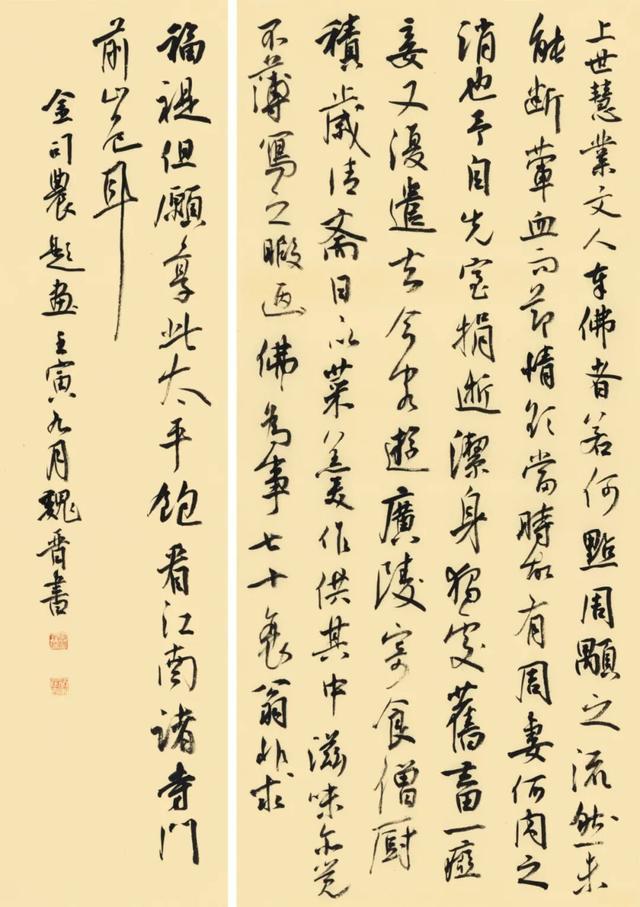 上世慧業文人奉佛者若何點周顒之流然未
能断葷血而節情欲當時故有周妻何肉之
消也予自先室捐逝潔身獨處舊畜一瘂
妾又復遣去今客遊廣陵寄食僧厨
積歲清齋日以菜羹作供其中滋味亦覺
不薄寫之暇画佛為事七十衰翁非求
福禔但願享此太平飽看江南諸寺門
前山色耳
金司農题画壬寅九月魏晋書